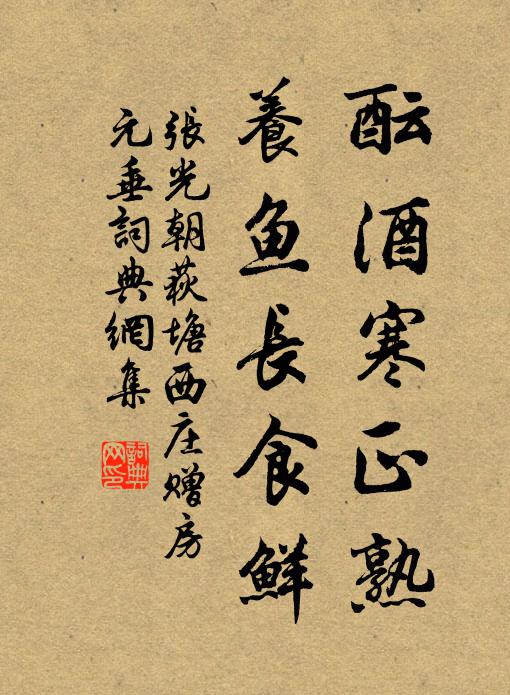 酝酒寒正熟
養鱼長食鮮
張光朝荻塘西庄赠房
元垂詞典網集
詞典
网印